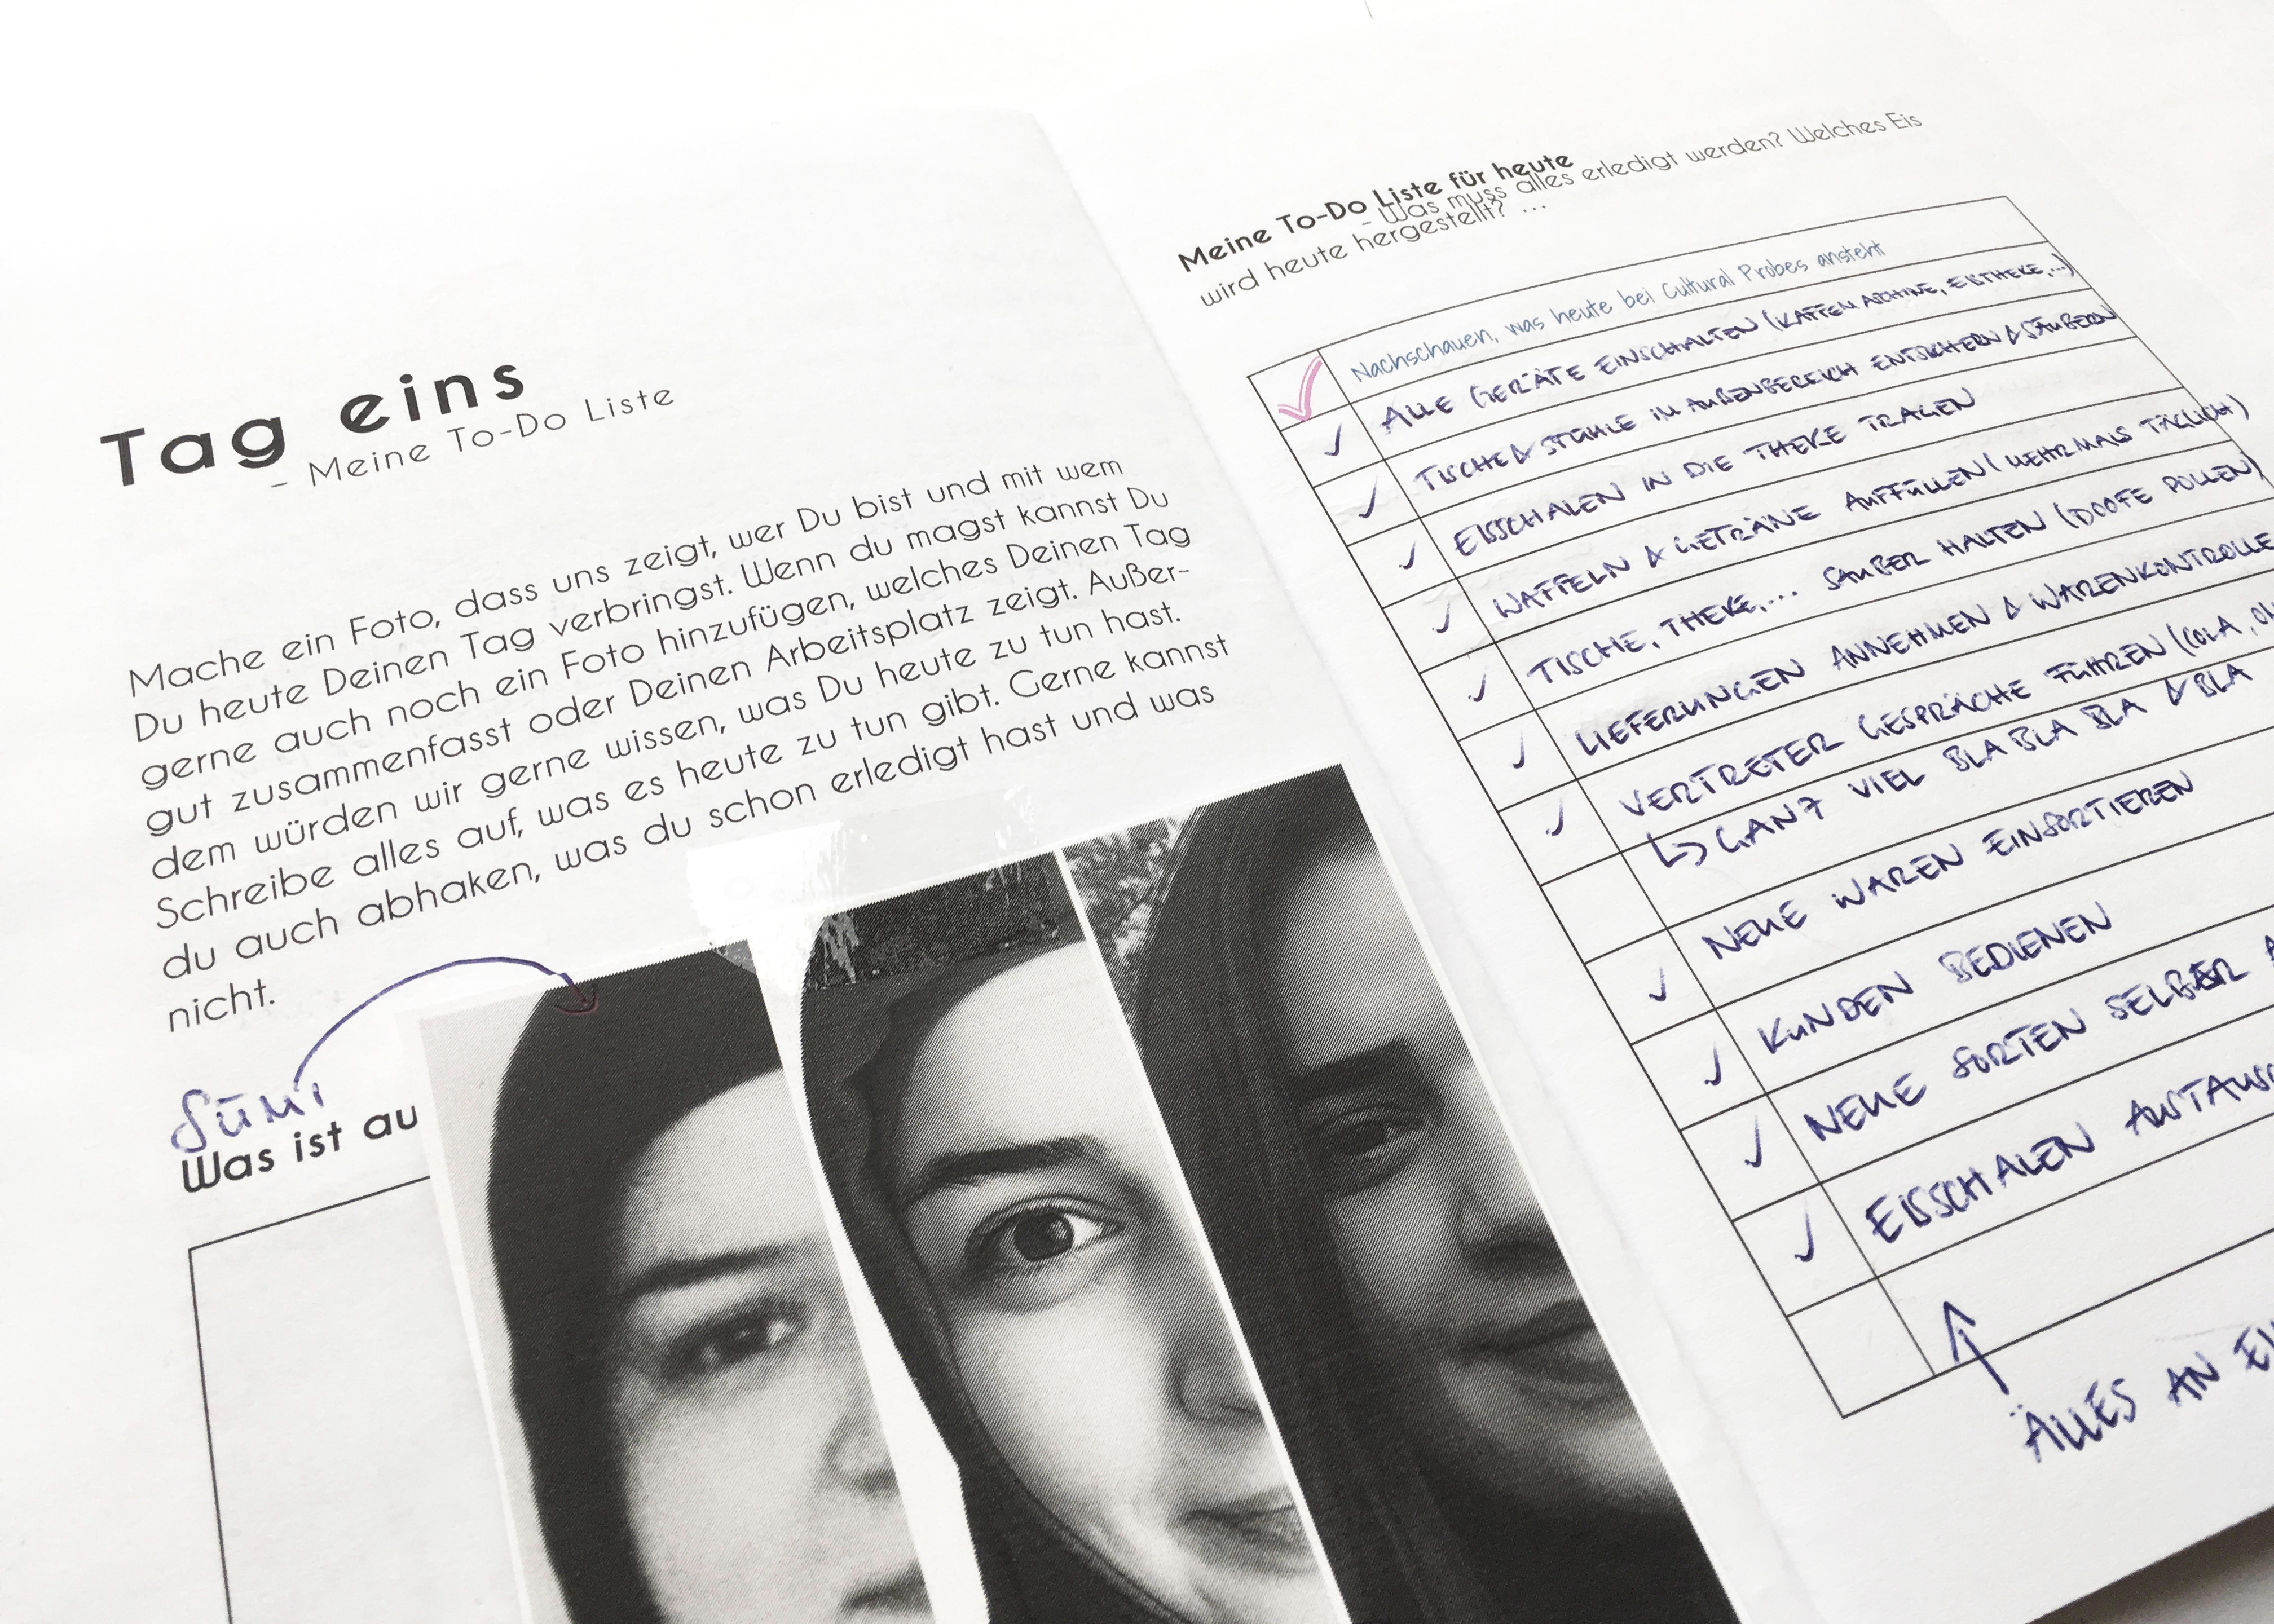 Tag eins
- Meine To-Do Liste
Mache ein Foto, dass uns zeigt, wer Du bist und mit wem
Du heute Deinen Tag verbringst. Wenn du magst kannst Du
gerne auch noch ein Foto hinzufügen, welches Deinen Tag
gut zusammenfasst oder Deinen Arbeitsplatz zeigt. Außer-
dem würden wir gerne wissen, was Du heute zu tun hast.
Schreibe alles auf, was es heute zu tun gibt. Gerne kannst
du auch abhaken, was du schon erledigt hast und was
nicht.
Sümi
Was ist au
Meine To-Do Liste für heute
- Was muss alles erledigt werden? Welches Eis
wird heute hergestellt? ...
Nachschauen, was heute bei Cultural Probes ansteht
ALLE GERÄTE EINSCHALTEN (KAFFEEMASCHINE, EISTHEKE,...)
TISCHE & STÜHLE IM AUßENBEREICH ENTSICHERN & SÄUBERN
EISSCHALEN IN DIE THEKE TRAGEN
WAFFELN & GETRÄNE AUFFÜLLEN (MEHRMALS TÄGLICH)
TISCHE, THEKE,... SAUBER HALTEN (DOOFE POLLEN)
LIEFERUNGEN ANNEHMEN & WARENKONTROLLE
VERTRETER GESPRÄCHE FÜHREN (COLA,
↳ GANZ VIEL BLA BLA BLA & BLA
NEUE WAREN EINSORTIEREN
KUNDEN BEDIENEN
NEUE SORTEN SELBER
EISSCHALEN AUSTAUSC
ÄLLES AN